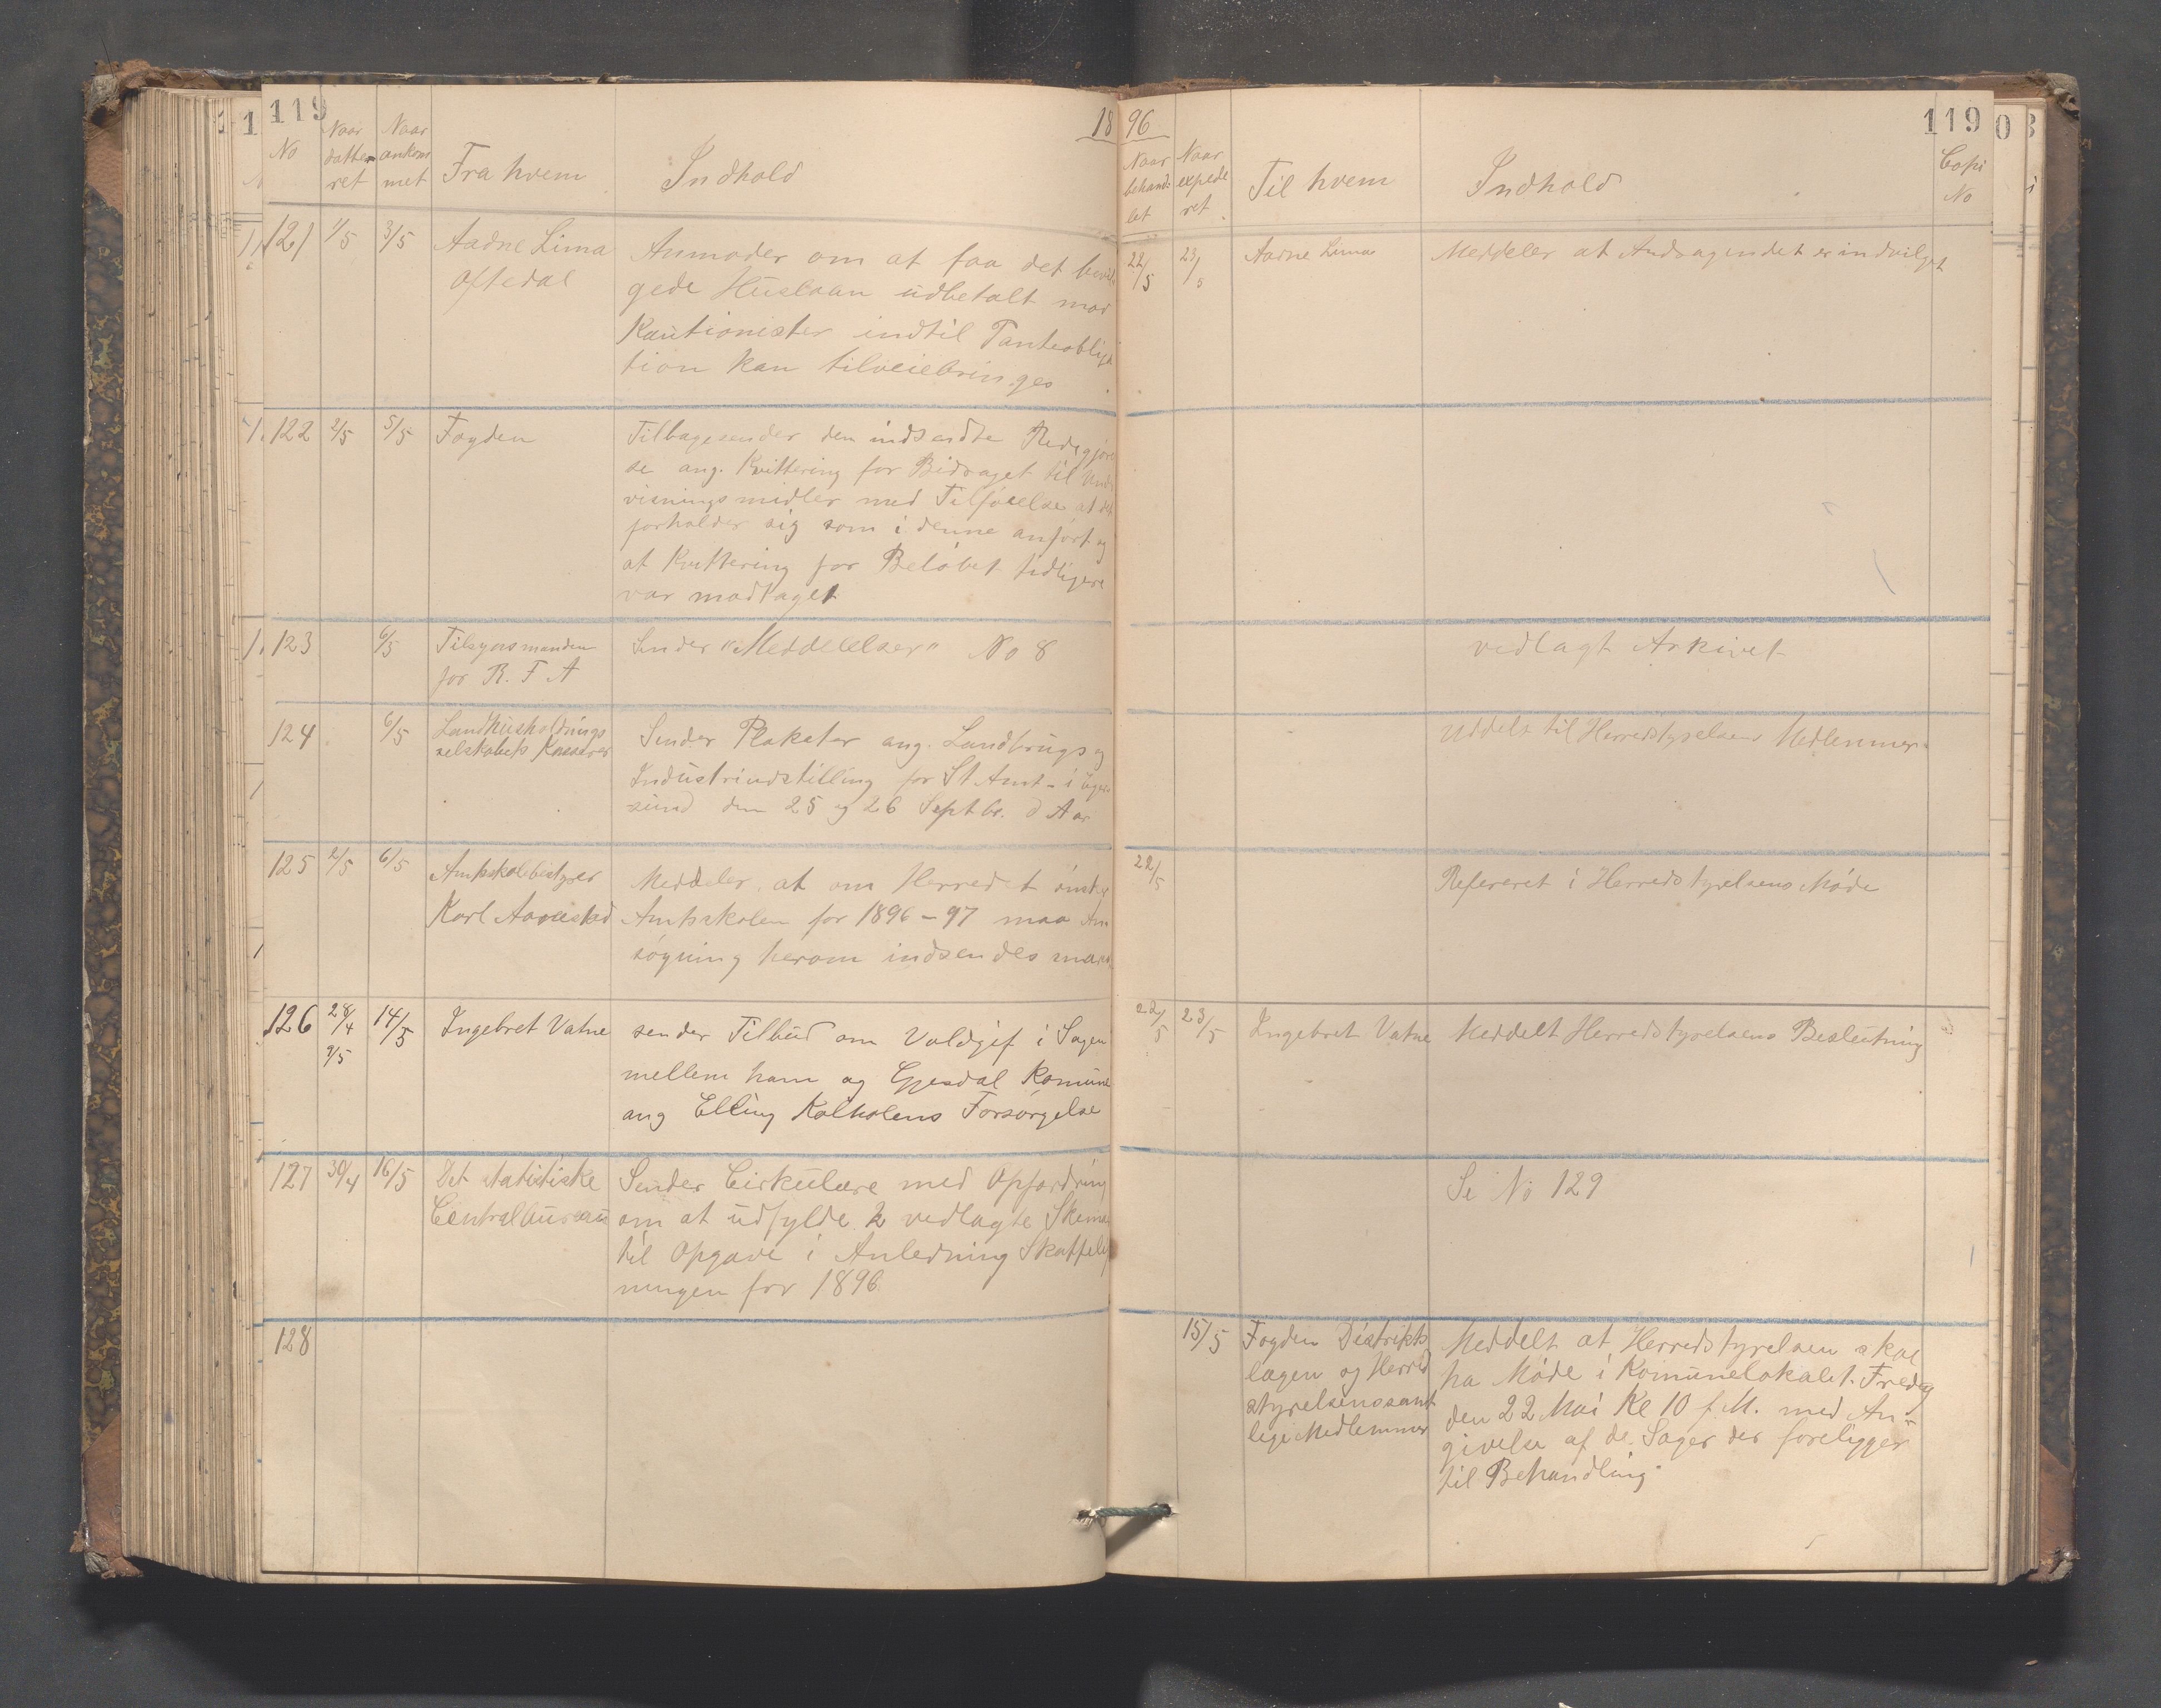 119
18 96
119
No
Naar datteret
Naar ankommet
Fra hvem
Indhold
Naar behandlet
Naar expederet
Til hvem
Indhold
Copi No
121 1/5 3/5 Aadne Lima
Oftedal
Anmoder om at faa det bevil
gede Huslaan udbetalt mod
Kautionister indtil Panteobliga
tion kan tilveiebringes
22/5 23/5 Aadne Lima Meddeler at Andragendet er indvilget
122 2/5 5/5 Fogden
Tilbagesender den indsendte Redegjørel
se ang. Kvittering for Bidraget til Under
visningsmidler med Tilføielse at det
forholder sig som i denne anført og
at Kvittering for Beløbet tidligere
var modtaget
123 6/5 Tilsynsmanden
for R. F. A
Sender "Meddelelser" No 8
vedlagt Arkivet
124 6/5 Landhusholdnings
selskabets Kasserer
Sender Plakater ang. Landbrugs og
Industriudstilling for St Amt i Eger
sund den 25 og 26 Septbr. d Aar
Uddelt til Herredstyrelsens Medlemmer
125 2/5 6/5 Amtsskolebestyrer
Karl Aarrestad
Meddeler at om Herredet ønsker
Amtsskolen for 1896-97 maa An
søgning herom indsendes
22/5 Refereret i Herredstyrelsens Møde
126 28/4 9/5 14/5 Ingebret Vatne
sender Tilbud om Voldgif i Sagen
mellem ham og Gjesdal Komune
ang Elling Kolholens Forsørgelse
22/5 23/5 Ingebret Vatne Meddelt Herredstyrelsens Beslutning
127 30/4 16/5 Det statistiske
Centralbureau
Sender Cirkulære med Opfordring
om at udfylde 2 vedlagte Skema
til Opgave i Anledning Skattelig
ningen for 1896
Se No 129
128
15/5 Fogden Distrikts
lægen og Herred
styrelsens samt
lige Medlemmer
Meddelt at Herredstyrelsen skal
ha Møde i Komunelokalet Fredag
den 22 Mai Kl 10 f.M. med An-
givelse af de Sager der foreligger
til Behandling